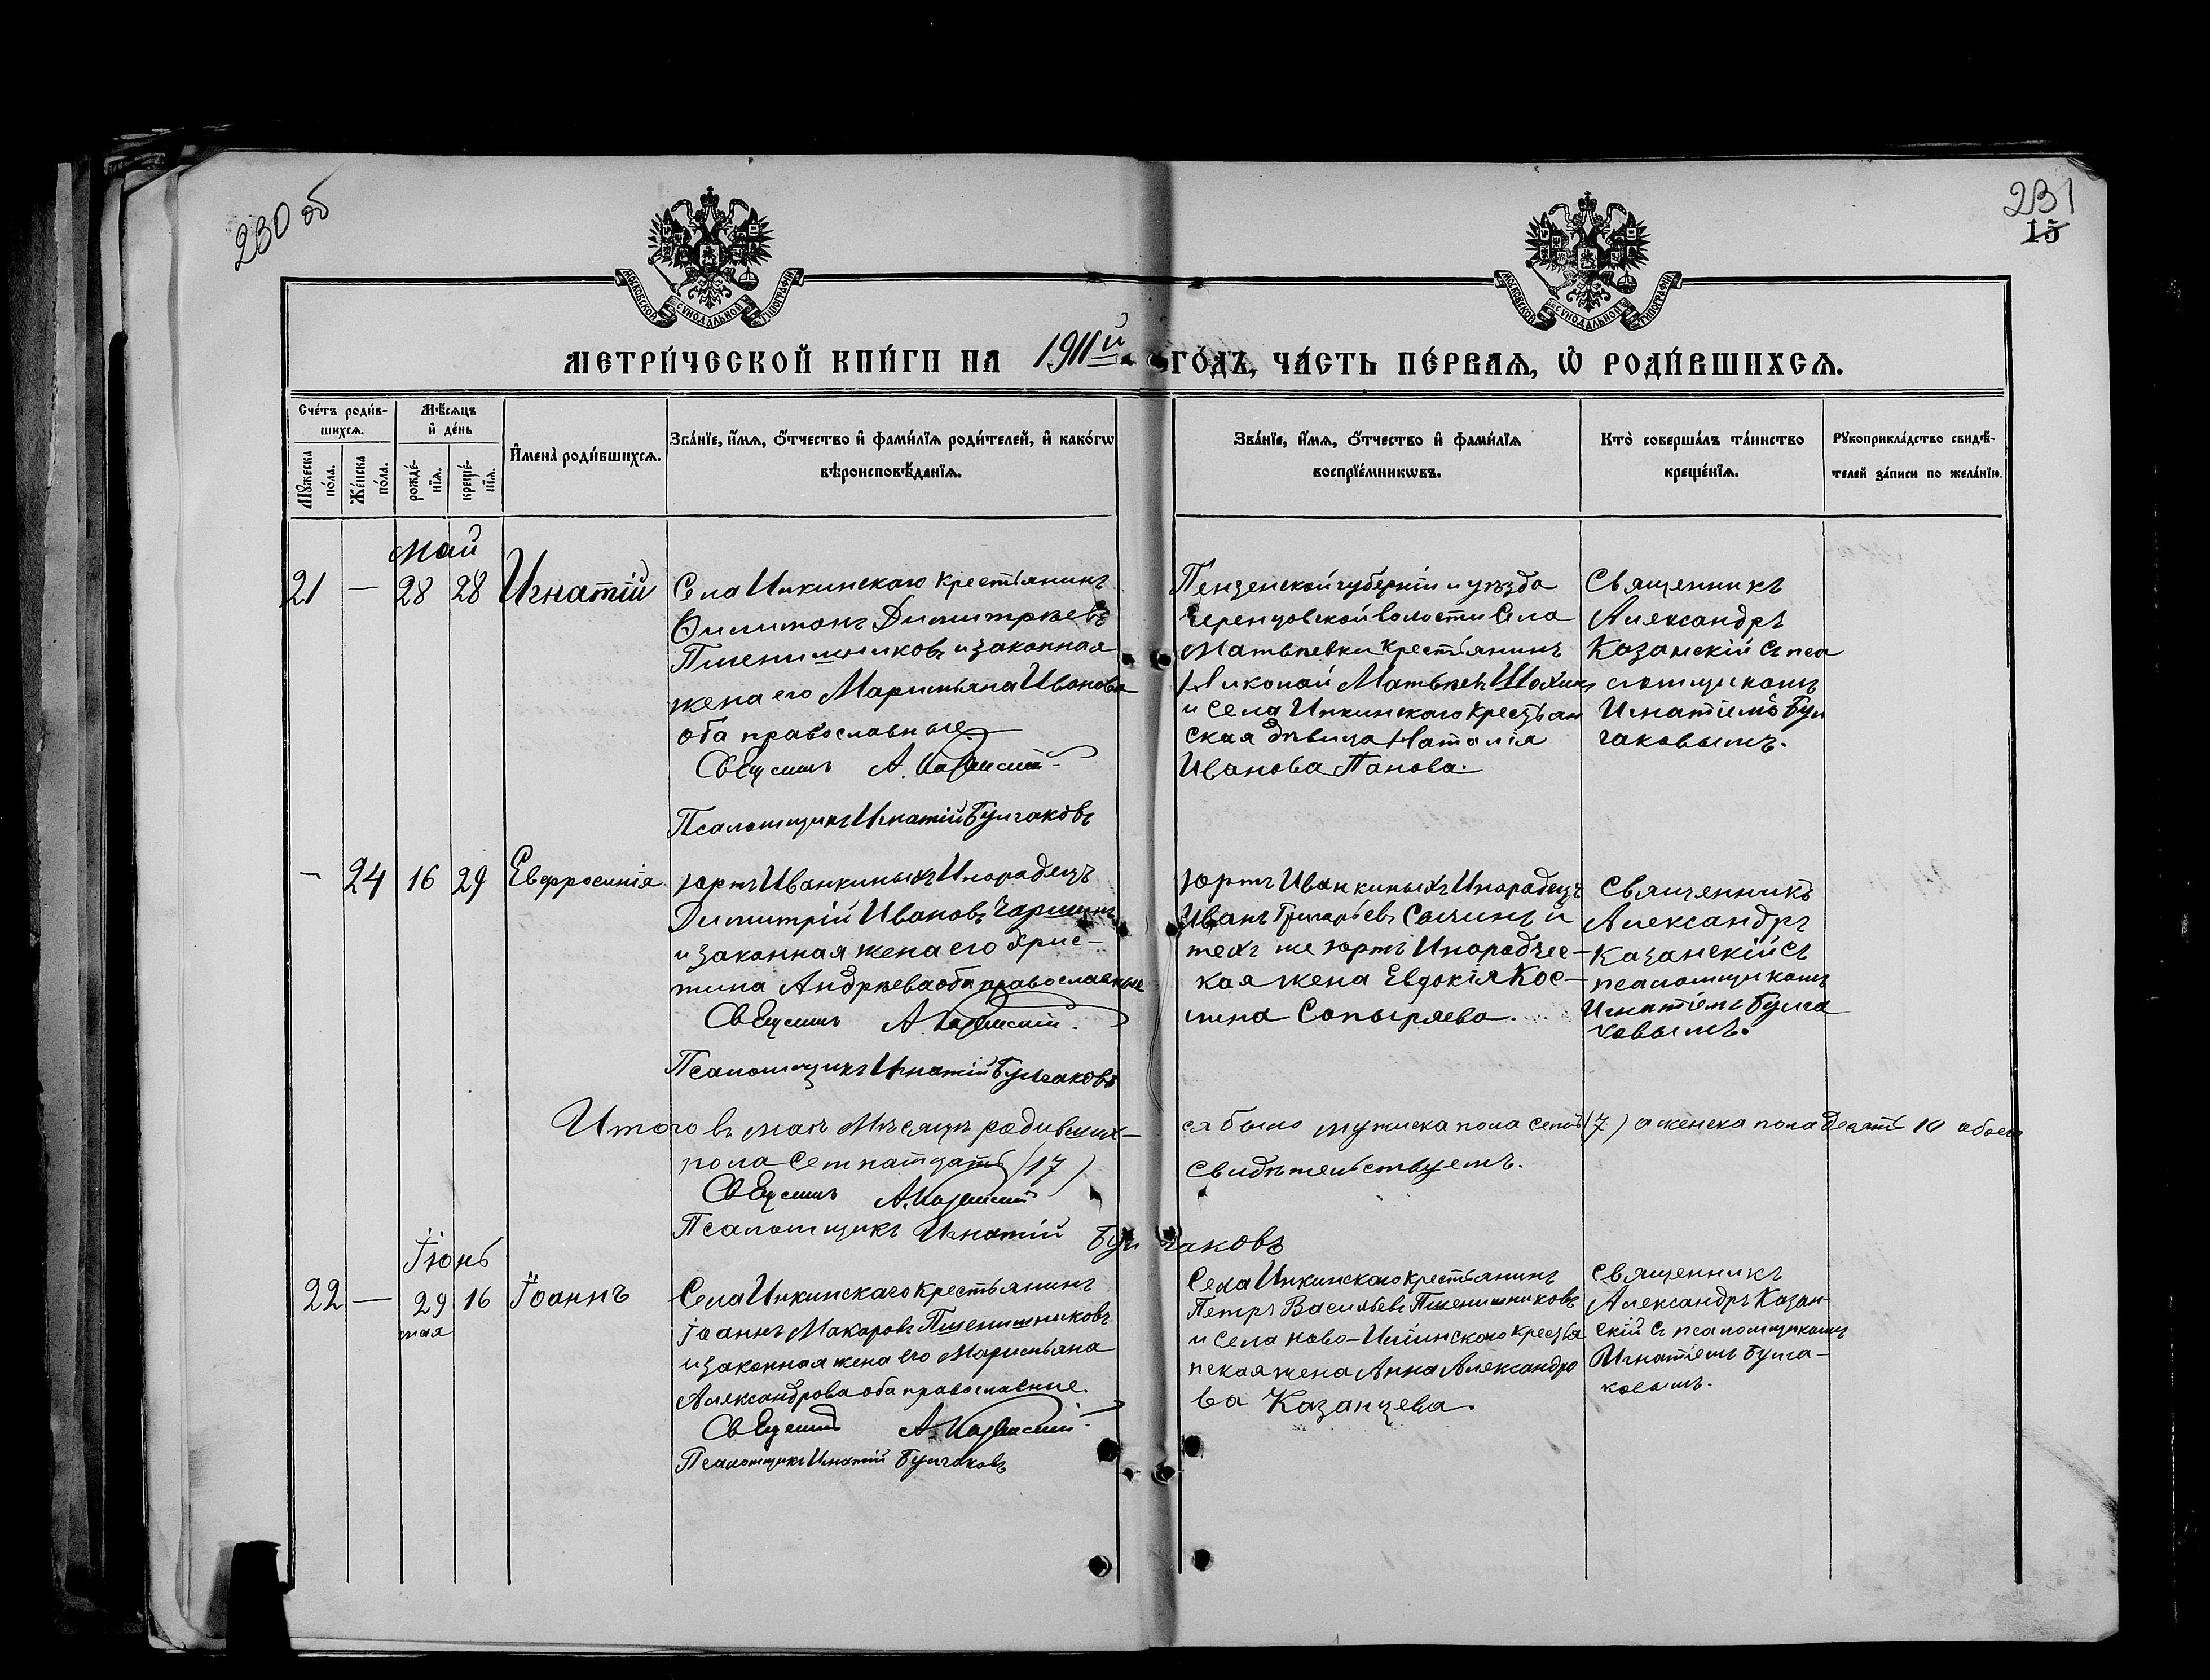 230 об
231
15
МОСКОВСКОЙ СУНОДАЛЬНОЙ ТИПОГРАФІИ
МОСКОВСКОЙ СУНОДАЛЬНОЙ ТИПОГРАФІИ
МЕТРИ́ЧЕСКОЙ КНИ́ГИ НА 1911й ГО́ДЪ, ЧА́СТЬ ПЕ́РВАѦ, Ѡ҆ РОДИ́ВШИХСѦ.
Сче́тъ роди́в-
шихсѧ.
Мꙋжеска по́ла.
Же́нска по́ла.
Мѣ́сѧцъ
и҆ де́нь
рожде́-
нїѧ.
креще́-
нїѧ.
И҆мена̀ роди́вшихсѧ.
Зва́нїе, и҆́мѧ, о҆́тчество и҆ фами́лїѧ роди́телей, и҆ како́гѡ
вѣроисповѣ́данїѧ.
Зва́нїе, и҆́мѧ, о҆́тчество и҆ фами́лїѧ
воспрїе́мникѡвъ.
Кто̀ соверша́лъ та́инство
креще́нїѧ.
Рꙋкоприкла́дство свидѣ́-
телей за́писи по жела́нїю.
Май
21 — 28 28 Игнатій
Села Инкинскаго крестьянинъ
Ѳилимонъ Димитріевъ
Пшенишниковъ и законная
жена его Маримьяна Иванова
оба православные
Священникъ А. Казанскій
Псаломщикъ Игнатій Булгаковъ
Пензенской губерніи и уѣзда
волости Села
Матвѣевки крестьянинъ
Николай Матвѣевъ
и села Инкинскаго крестьян
ская дѣвица Наталія
Иванова Панова.
Священникъ
Александръ
Казанскій съ пса
ломщикомъ
Игнатіемъ Бул
гаковымъ.
— 24 16 29 Евфросинія
Юртъ Иванкиныхъ Инородецъ
Димитрій Ивановъ
и законная жена его Хрис-
тина Андрѣева оба православные
Священникъ А. Казанскій
Псаломщикъ Игнатій Булгаковъ
Юртъ Иванкиныхъ Инородецъ
Иванъ Григорьевъ и
техъ же юртъ Инородчес-
кая жена Евдокія Кос-
мина Сопыряева.
Священникъ
Александръ
Казанскій съ
псаломщикомъ
Игнатіемъ Булга
ковымъ.
Итого въ маѣ мѣсяцѣ родивших-
ся было мужска пола семь (7) а женска пола десять 10 обоего
пола Семнатцать (17)
свидѣтельствуемъ.
Священникъ А. Казанскій
Псаломщикъ Игнатій Булгаковъ
Іюнь
22 — 29 16 Іоаннъ
мая
Села Инкинскаго крестьянинъ
Іоаннъ Макаровъ Пшенишниковъ
и законная жена его Маримьяна
Александрова оба православные.
Священникъ А. Казанскій
Псаломщикъ Игнатій Булгаковъ
Села Инкинскаго крестьянинъ
Петръ Васильевъ Пшенишниковъ
и села Ново-Ильинскаго крестья
нская жена Анна Александро
ва Казанцева.
Священникъ
Александръ Казан-
скій съ псаломщикомъ
Игнатіемъ Булга-
ковымъ.